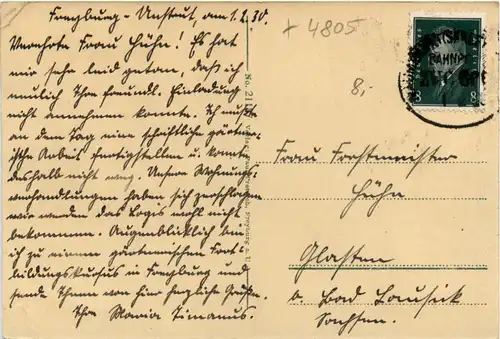 Freyburg-Unstrut, am 1.2.30.
Verehrte Frau Hühn! Es hat
mir sehr leid getan, daß ich
neulich Ihre freundl. Einladung
nicht annehmen konnte. Ich mußte
an dem Tag eine schriftliche gärtne-
rische Arbeit fertigstellen u. konnte
deshalb nicht weg. Unsere Wohnungs-
verhandlungen haben sich zerschlagen
wir werden das Logis wohl nicht
bekommen. Augenblicklich bin
ich zu einem gärtnerischen Fort-
bildungskursus in Freyburg und
sende Ihnen von hier herzliche Grüße.
Ihre Maria Timanus.
+ 4805
8,-
No. 21
Freyburg a. U.
BAHNPOST
ZUG
8
Frau Forstmeister
Hühn
Glasten
b. Bad Lausick
Sachsen.